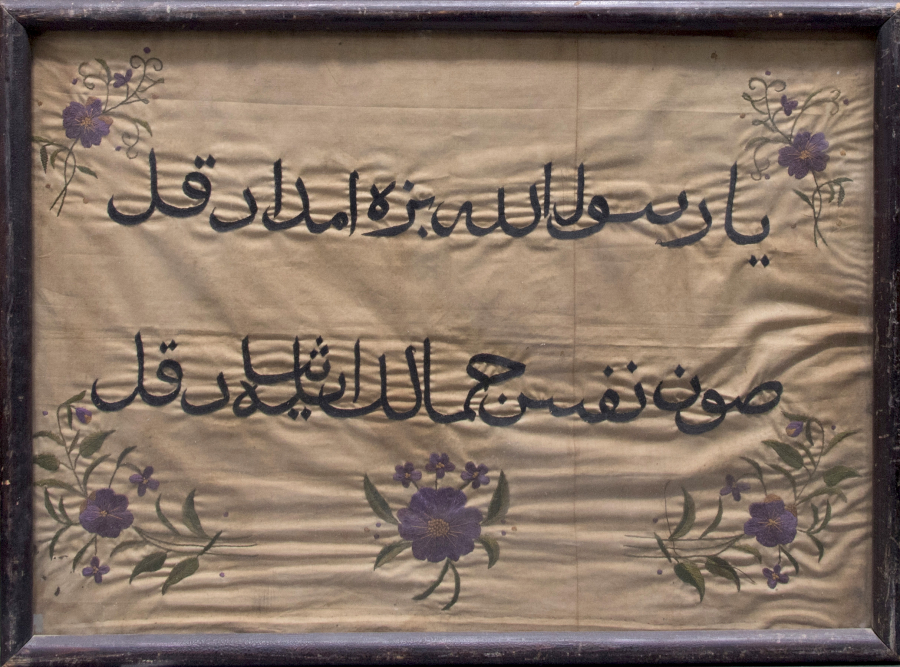 يا رسول الله بزه امداد قل
صون نفس جمالك ايله شاد قل